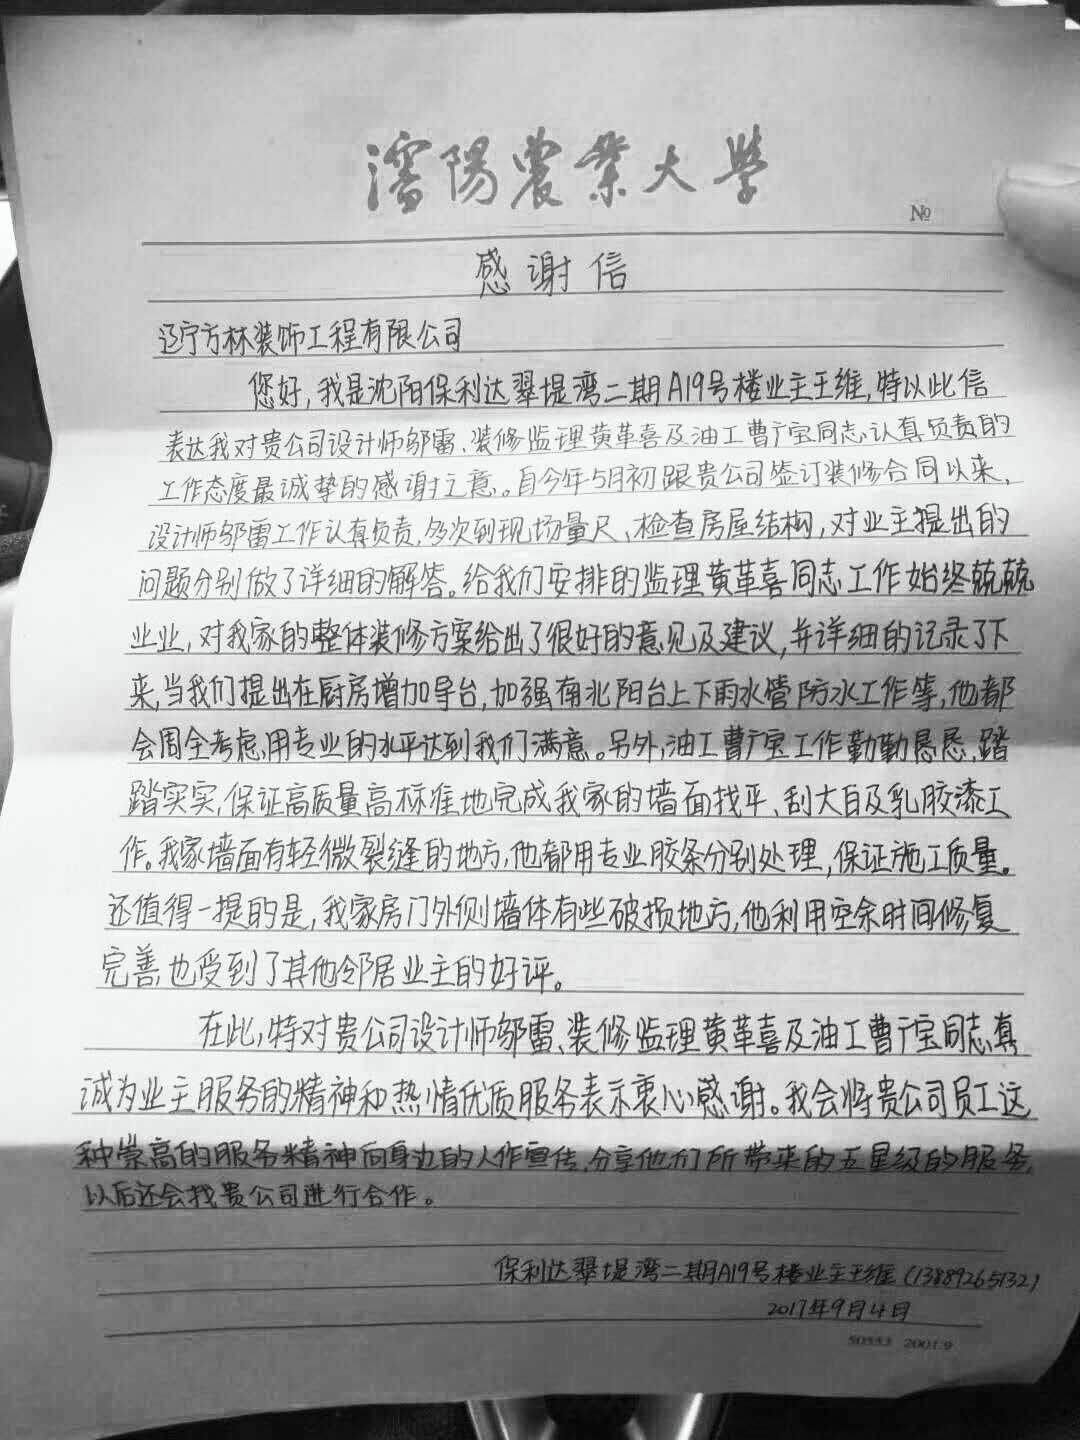 瀋陽農業大學
№
感谢信
辽宁方林装饰工程有限公司
您好,我是沈阳保利达翠堤湾二期A19号楼业主王维,特以此信
表达我对贵公司设计师邬雷、装修监理黄革喜及油工曹广宝同志认真负责的
工作态度最诚挚的感谢之意。自今年5月初跟贵公司签订装修合同以来,
设计师邬雷工作认真负责,多次到现场量尺、检查房屋结构,对业主提出的
问题分别做了详细的解答。给我们安排的监理黄革喜同志工作始终兢兢
业业,对我家的整体装修方案给出了很好的意见及建议,并详细的记录了下
来,当我们提出在厨房增加导台,加强南北阳台上下雨水管防水工作等,他都
会周全考虑,用专业的水平达到我们满意。另外,油工曹广宝工作勤勤恳恳,踏
踏实实,保证高质量高标准地完成我家的墙面找平、刮大白及乳胶漆工
作。我家墙面有轻微裂缝的地方,他都用专业胶条分别处理,保证施工质量。
还值得一提的是,我家房门外侧墙体有些破损地方,他利用空余时间修复
完善,也受到了其他邻居业主的好评。
在此,特对贵公司设计师邬雷、装修监理黄革喜及油工曹广宝同志,真
诚为业主服务的精神和热情优质服务表示衷心感谢。我会将贵公司员工这
种崇高的服务精神向身边的人作宣传,分享他们所带来的五星级的服务,
以后还会找贵公司进行合作。
保利达翠堤湾二期A19号楼业主王维(13889265132)
2017年9月4日
50553 2001.9